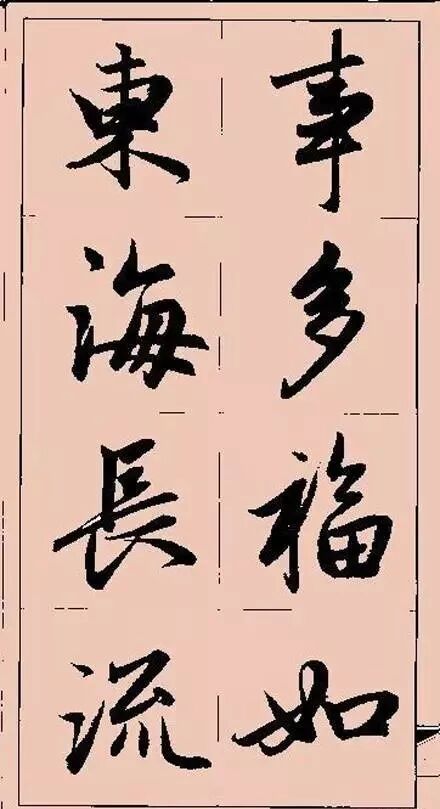 事多福如
東海長流